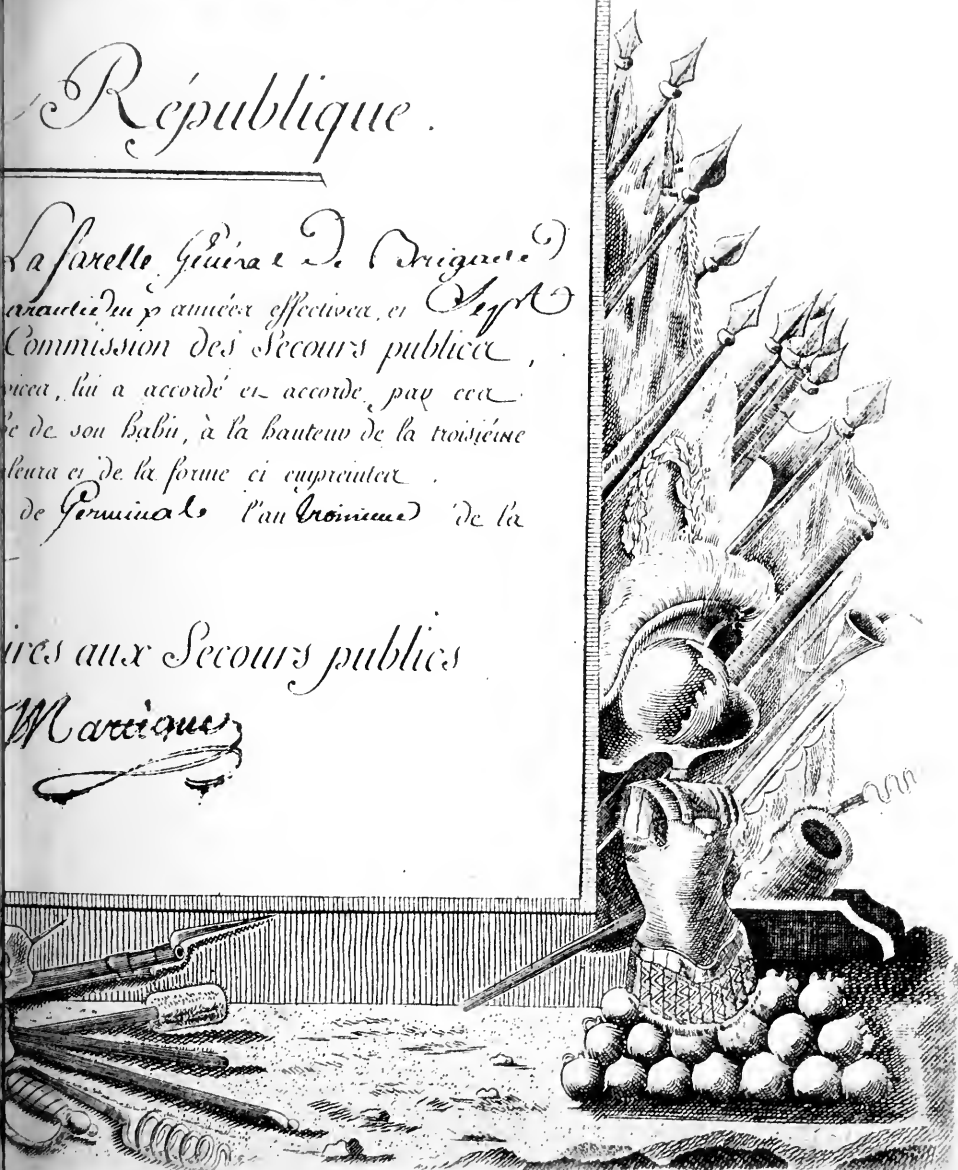 République.
Lafarelle, Général De Brigade
années effectives, et Sept
Commission des Secours publics,
lui a accordé et accorde, par ces
de son habit, à la hauteur de la troisième
et de la forme ci empreintes.
de Germinal l'an troisieme de la
ires aux Secours publics
Martique